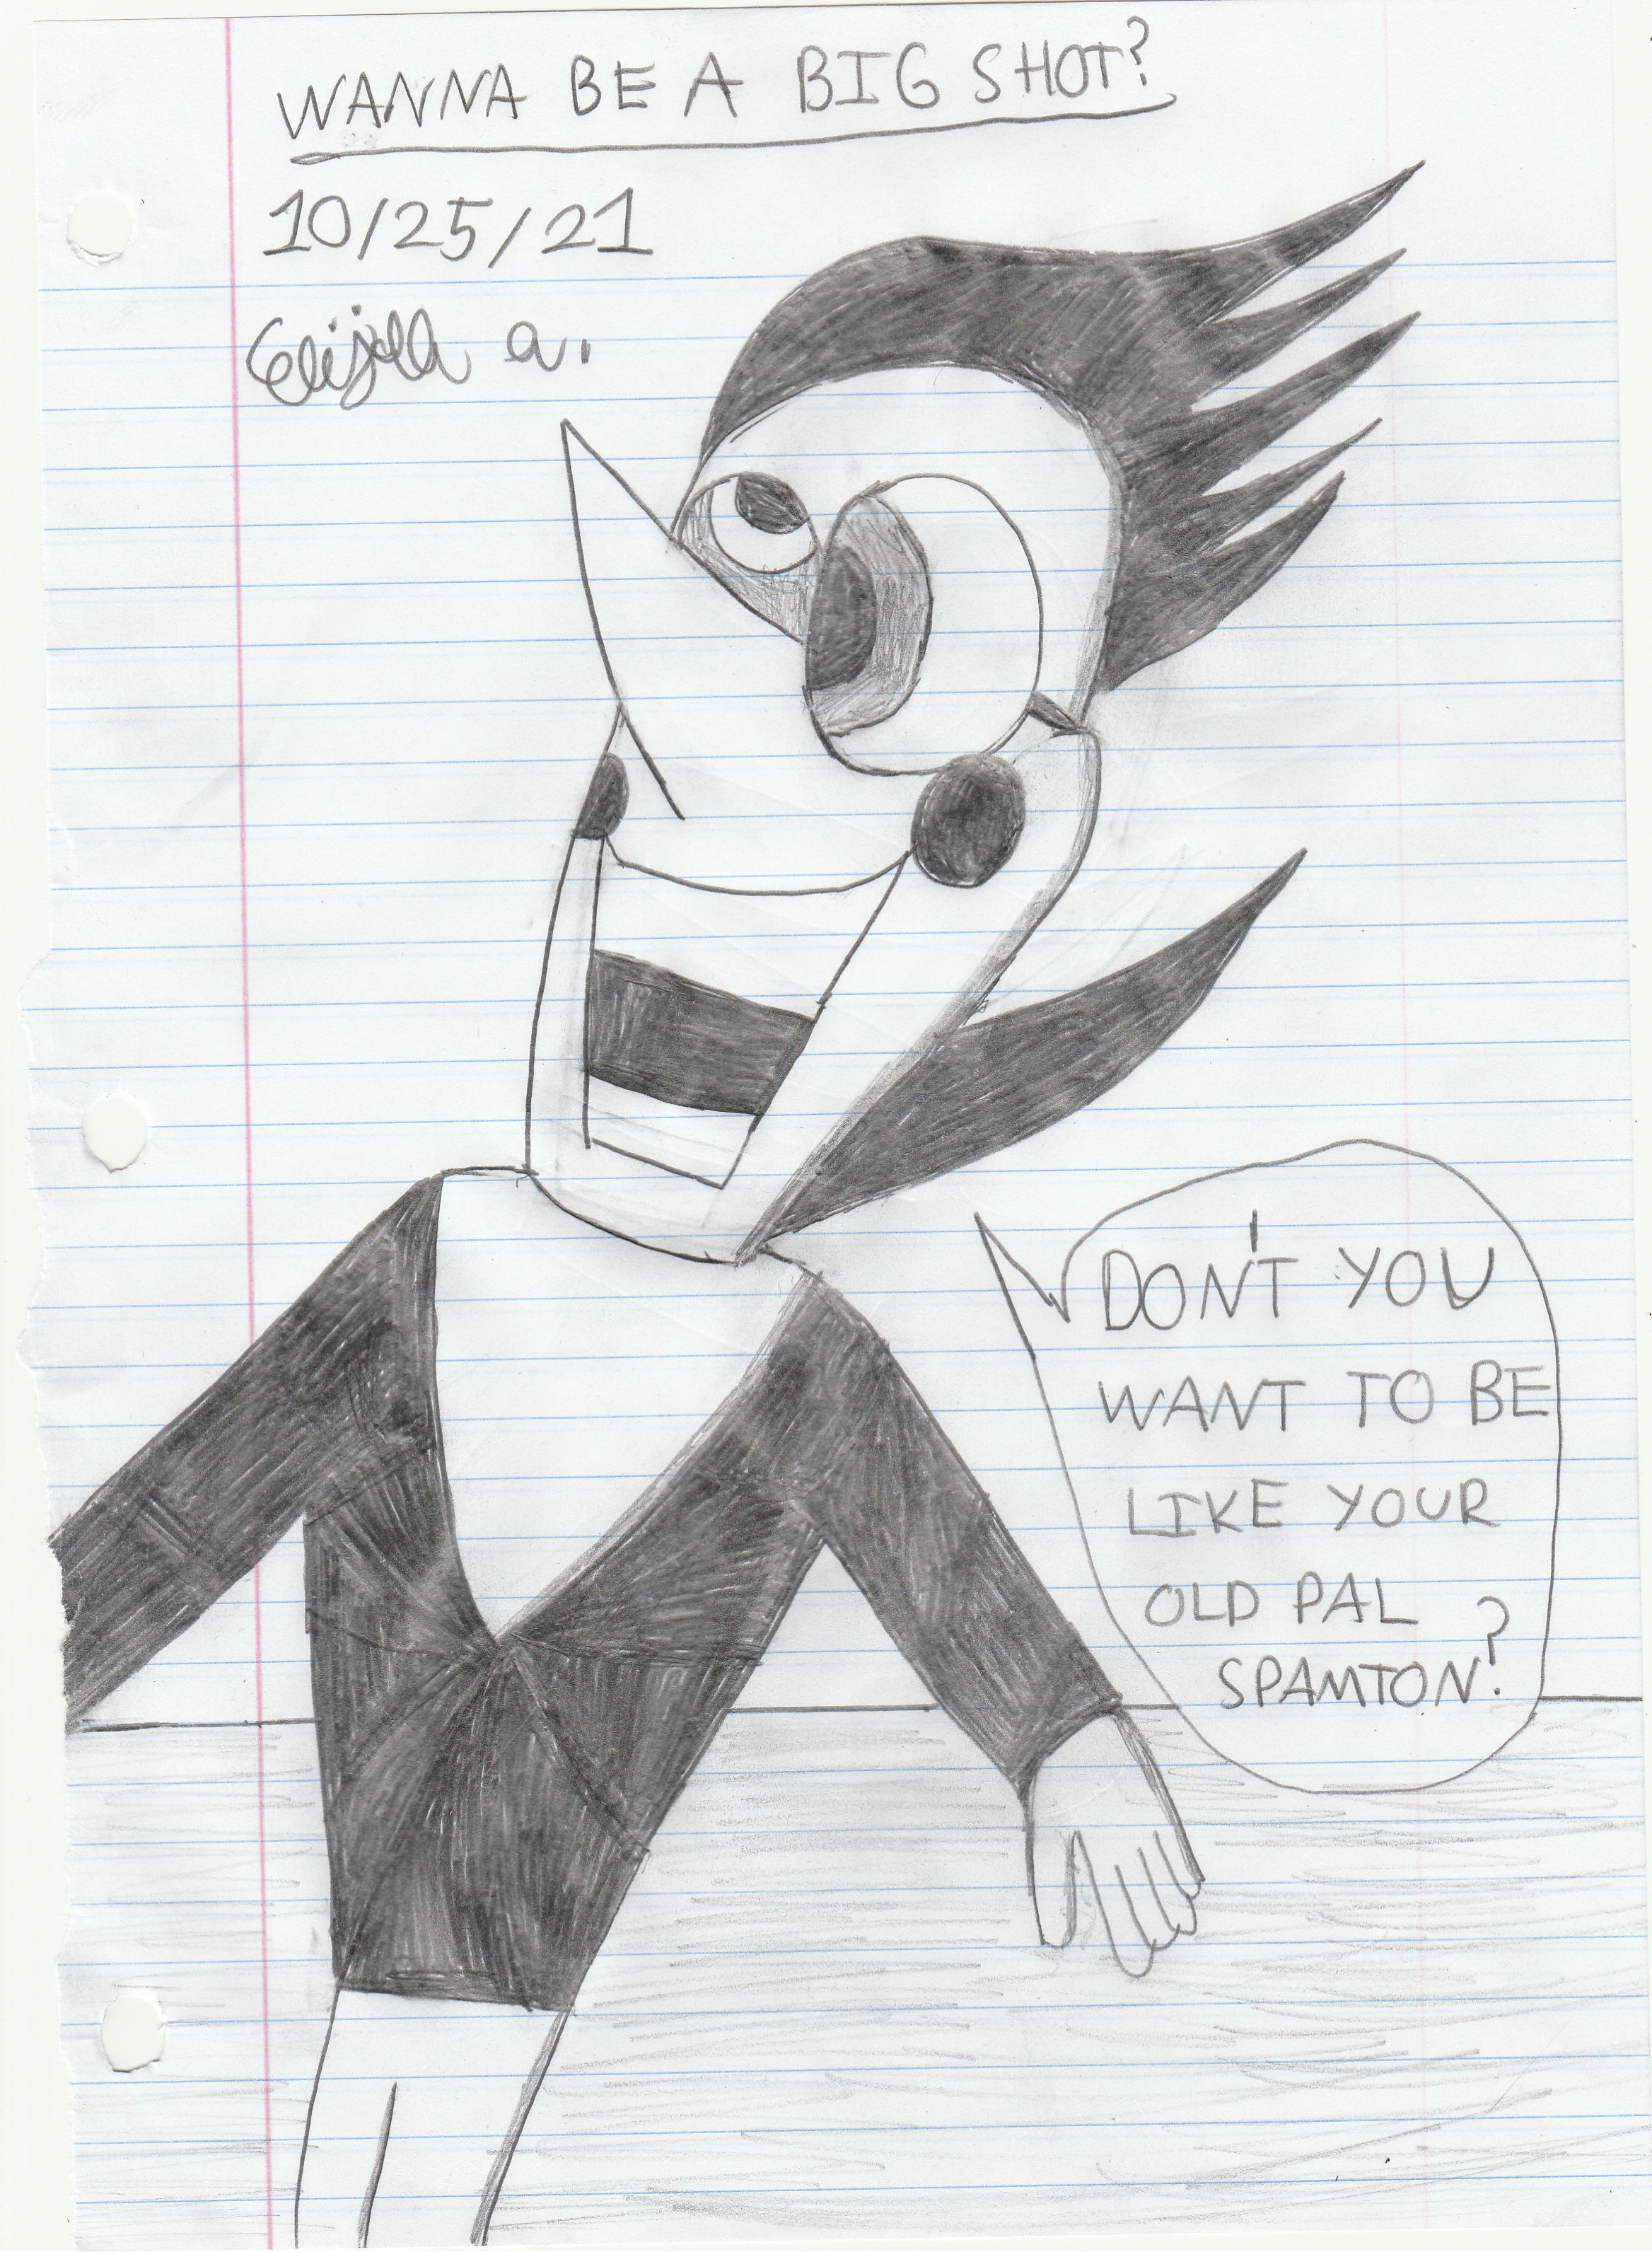 WANNA BE A BIG SHOT?
10/25/21
Elijah a.
DON'T YOU
WANT TO BE
LIKE YOUR
OLD PAL
SPAMTON?